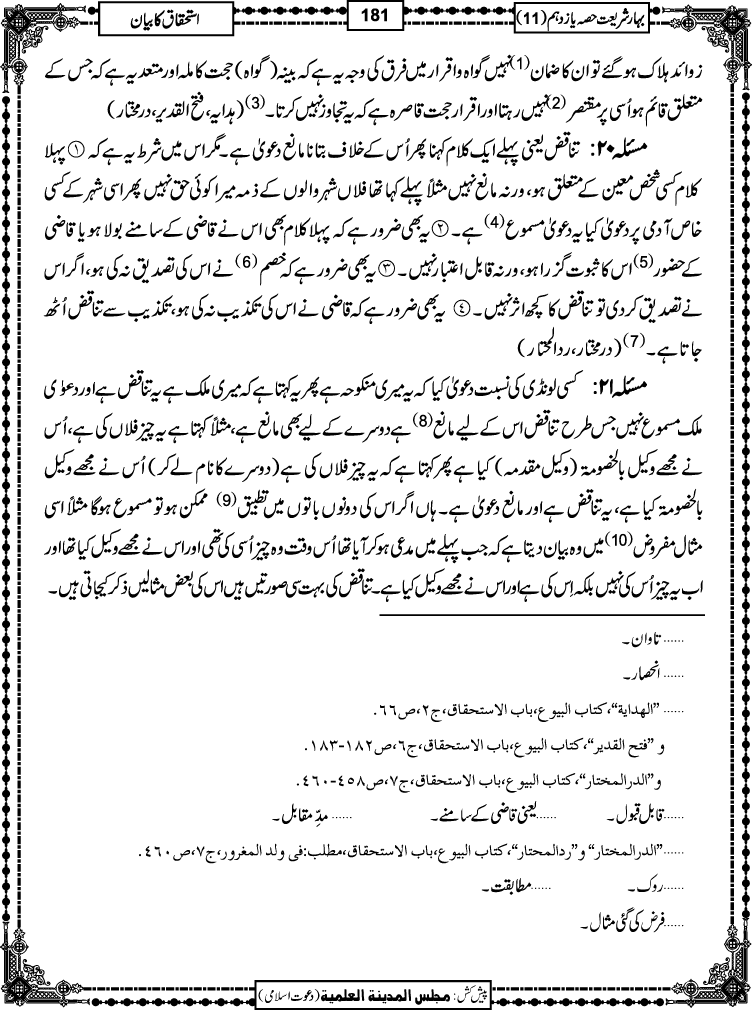 بہار شریعت حصہ یازدہم (11)
181
استحقاق کا بیان
زوائد ہلاک ہوگئے تو ان کا ضمان (1) نہیں گواہ و اقرار میں فرق کی وجہ یہ ہے کہ بینہ (گواہ) حجت کاملہ اور متعدیہ ہے کہ جس کے
متعلق قائم ہو اُسی پر مقتصر (2) نہیں رہتا اور اقرار حجت قاصرہ ہے کہ یہ تجاوز نہیں کرتا۔ (3) (ہدایہ، فتح القدیر، درمختار)
مسئلہ ۲۰: تناقض یعنی پہلے ایک کلام کہنا پھر اُس کے خلاف بتانا مانع دعویٰ ہے۔ مگر اس میں شرط یہ ہے کہ ① پہلا
کلام کسی شخص معین کے متعلق ہو، ورنہ مانع نہیں مثلاً پہلے کہا تھا فلاں شہر والوں کے ذمہ میرا کوئی حق نہیں پھر اسی شہر کے کسی
خاص آدمی پر دعویٰ کیا یہ دعویٰ مسموع (4) ہے۔ ② یہ بھی ضرور ہے کہ پہلا کلام بھی اس نے قاضی کے سامنے بولا ہو یا قاضی
کے حضور (5) اس کا ثبوت گزرا ہو، ورنہ قابل اعتبار نہیں۔ ③ یہ بھی ضرور ہے کہ خصم (6) نے اس کی تصدیق نہ کی ہو، اگر اس
نے تصدیق کردی تو تناقض کا کچھ اثر نہیں۔ ④ یہ بھی ضرور ہے کہ قاضی نے اس کی تکذیب نہ کی ہو، تکذیب سے تناقض اُٹھ
جاتا ہے۔ (7) (درمختار، ردالمحتار)
مسئلہ ۲۱: کسی لونڈی کی نسبت دعویٰ کیا کہ یہ میری منکوحہ ہے پھر یہ کہتا ہے کہ میری ملک ہے یہ تناقض ہے اور دعوٰی
ملک مسموع نہیں جس طرح تناقض اس کے لیے مانع (8) ہے دوسرے کے لیے بھی مانع ہے، مثلاً کہتا ہے یہ چیز فلاں کی ہے، اُس
نے مجھے وکیل بالخصومۃ (وکیل مقدمہ) کیا ہے پھر کہتا ہے کہ یہ چیز فلاں کی ہے (دوسرے کا نام لے کر) اُس نے مجھے وکیل
بالخصومۃ کیا ہے، یہ تناقض ہے اور مانع دعویٰ ہے۔ ہاں اگر اس کی دونوں باتوں میں تطبیق (9) ممکن ہو تو مسموع ہوگا مثلاً اسی
مثال مفروض (10) میں وہ بیان دیتا ہے کہ جب پہلے میں مدعی ہوکر آیا تھا اُس وقت وہ چیز اُسی کی تھی اور اس نے مجھے وکیل کیا تھا اور
اب یہ چیز اُس کی نہیں بلکہ اِس کی ہے اور اس نے مجھے وکیل کیا ہے۔ تناقض کی بہت سی صورتیں ہیں اس کی بعض مثالیں ذکر کیجاتی ہیں۔
...... تاوان۔
...... انحصار۔
...... ”الهداية“، كتاب البيوع، باب الاستحقاق، ج۲، ص۶۶.
و ”فتح القدير“، كتاب البيوع، باب الاستحقاق، ج۶، ص۱۸۲-۱۸۳.
و”الدرالمختار“، كتاب البيوع، باب الاستحقاق، ج۷، ص۴۵۸-۴۶۰.
......قابل قبول۔ ......یعنی قاضی کے سامنے۔ ...... مدِّ مقابل۔
......”الدرالمختار“ و”ردالمحتار“، كتاب البيوع، باب الاستحقاق، مطلب: فى ولد المغرور، ج۷، ص۴۶۰.
......روک۔ ......مطابقت۔
......فرض کی گئی مثال۔
پیش کش: مجلس المدینة العلمیة (دعوت اسلامی)